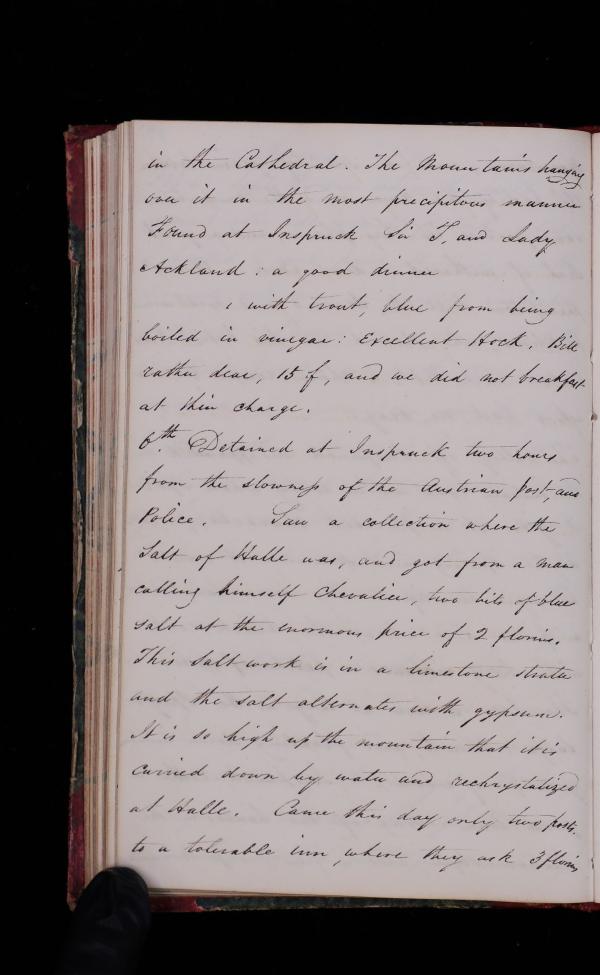 in the Cathedral. The Mountains hanging
over it in the most precipitous manner
Found at Inspruck Sir T. and Lady
Ackland: a good dinner
with trout, blue from being
boiled in vinegar: Excellent Hock. Bill
rather dear, 15 f, and we did not breakfast
at their charge.
6th. Detained at Inspruck two hours
from the slowness of the Austrian post, and
Police. Saw a collection where the
Salt of Halle was, and got from a man
calling himself Chevalier, two bits of blue
salt at the enormous price of 2 florins.
This Salt work is in a limestone strata
and the salt alternates with gypsum.
It is so high up the mountain that it is
carried down by water and rechrystalized
at Halle. Came this day only two posts.
to a tolerable inn, where they ask 3 florins